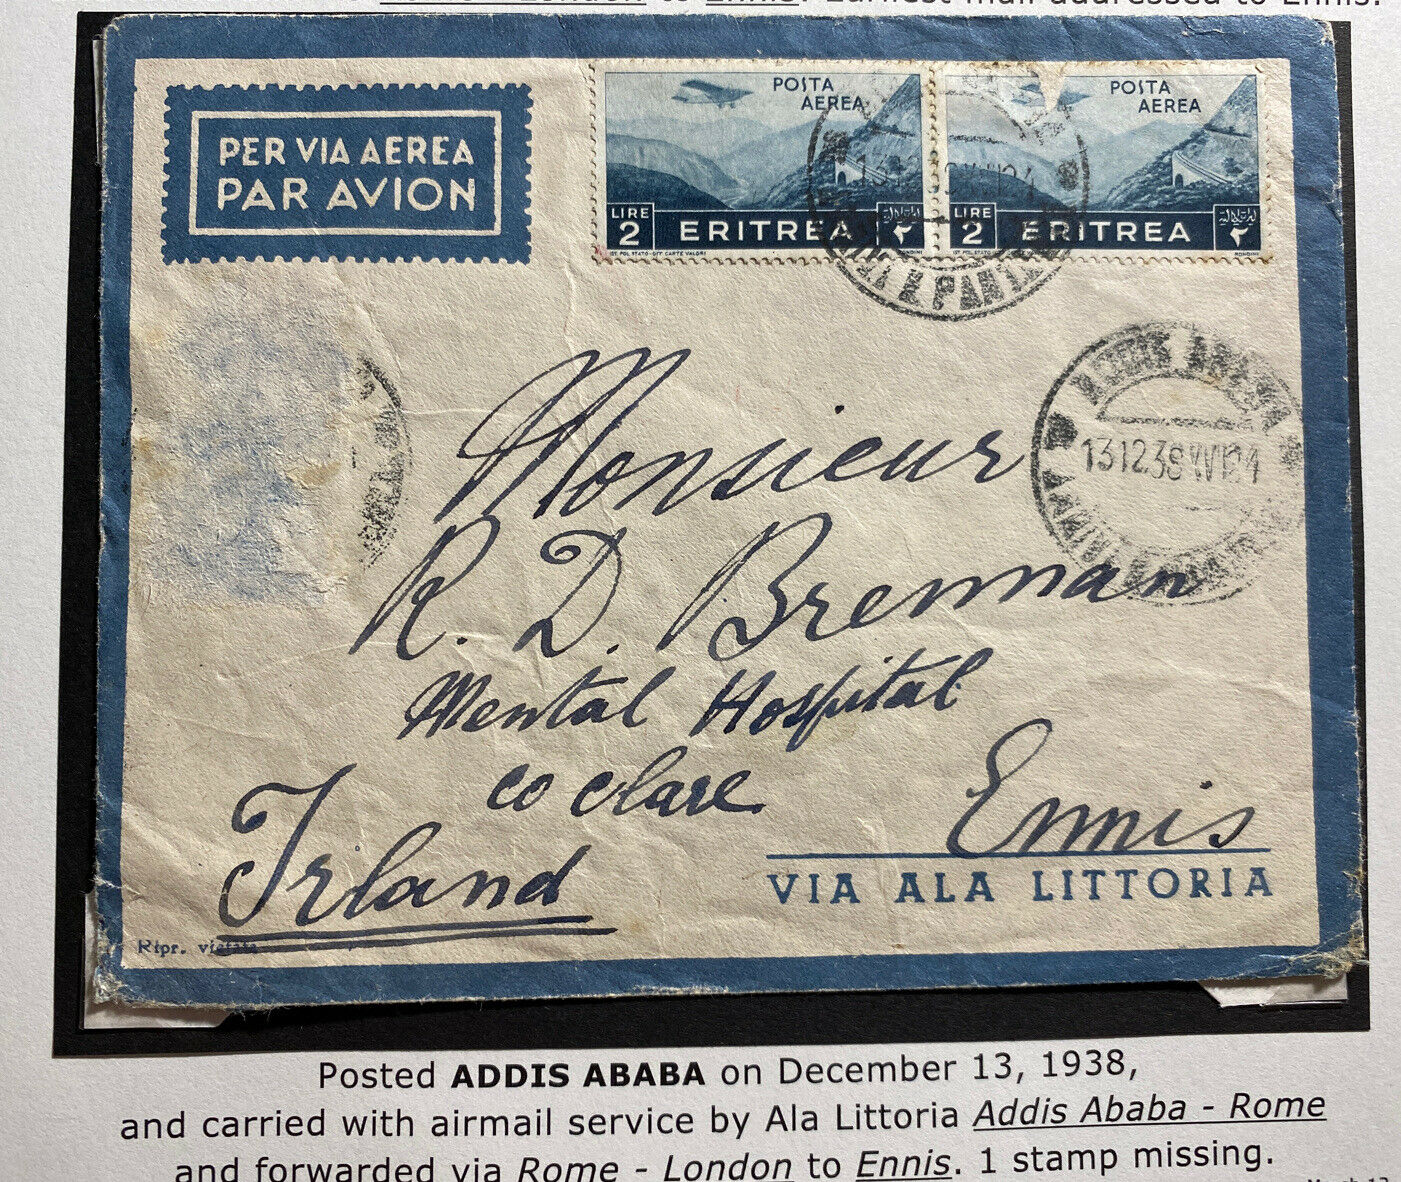 London to Ennis. Earliest mail addressed to Ennis.
PER VIA AEREA
PAR AVION
POSTA
AEREA
LIRE
2
ERITREA
IST. POL. STATO-OFF. CARTE VALORI
POSTA
AEREA
LIRE
2
ERITREA
RONDINI
ADDIS ABEBA
13 12 38 XVII 21
Monsieur
R. D. Brennan
Mental Hospital
co Clare
Ennis
Irland
VIA ALA LITTORIA
Ripr. vietata
Posted ADDIS ABABA on December 13, 1938,
and carried with airmail service by Ala Littoria Addis Ababa - Rome
and forwarded via Rome - London to Ennis. 1 stamp missing.